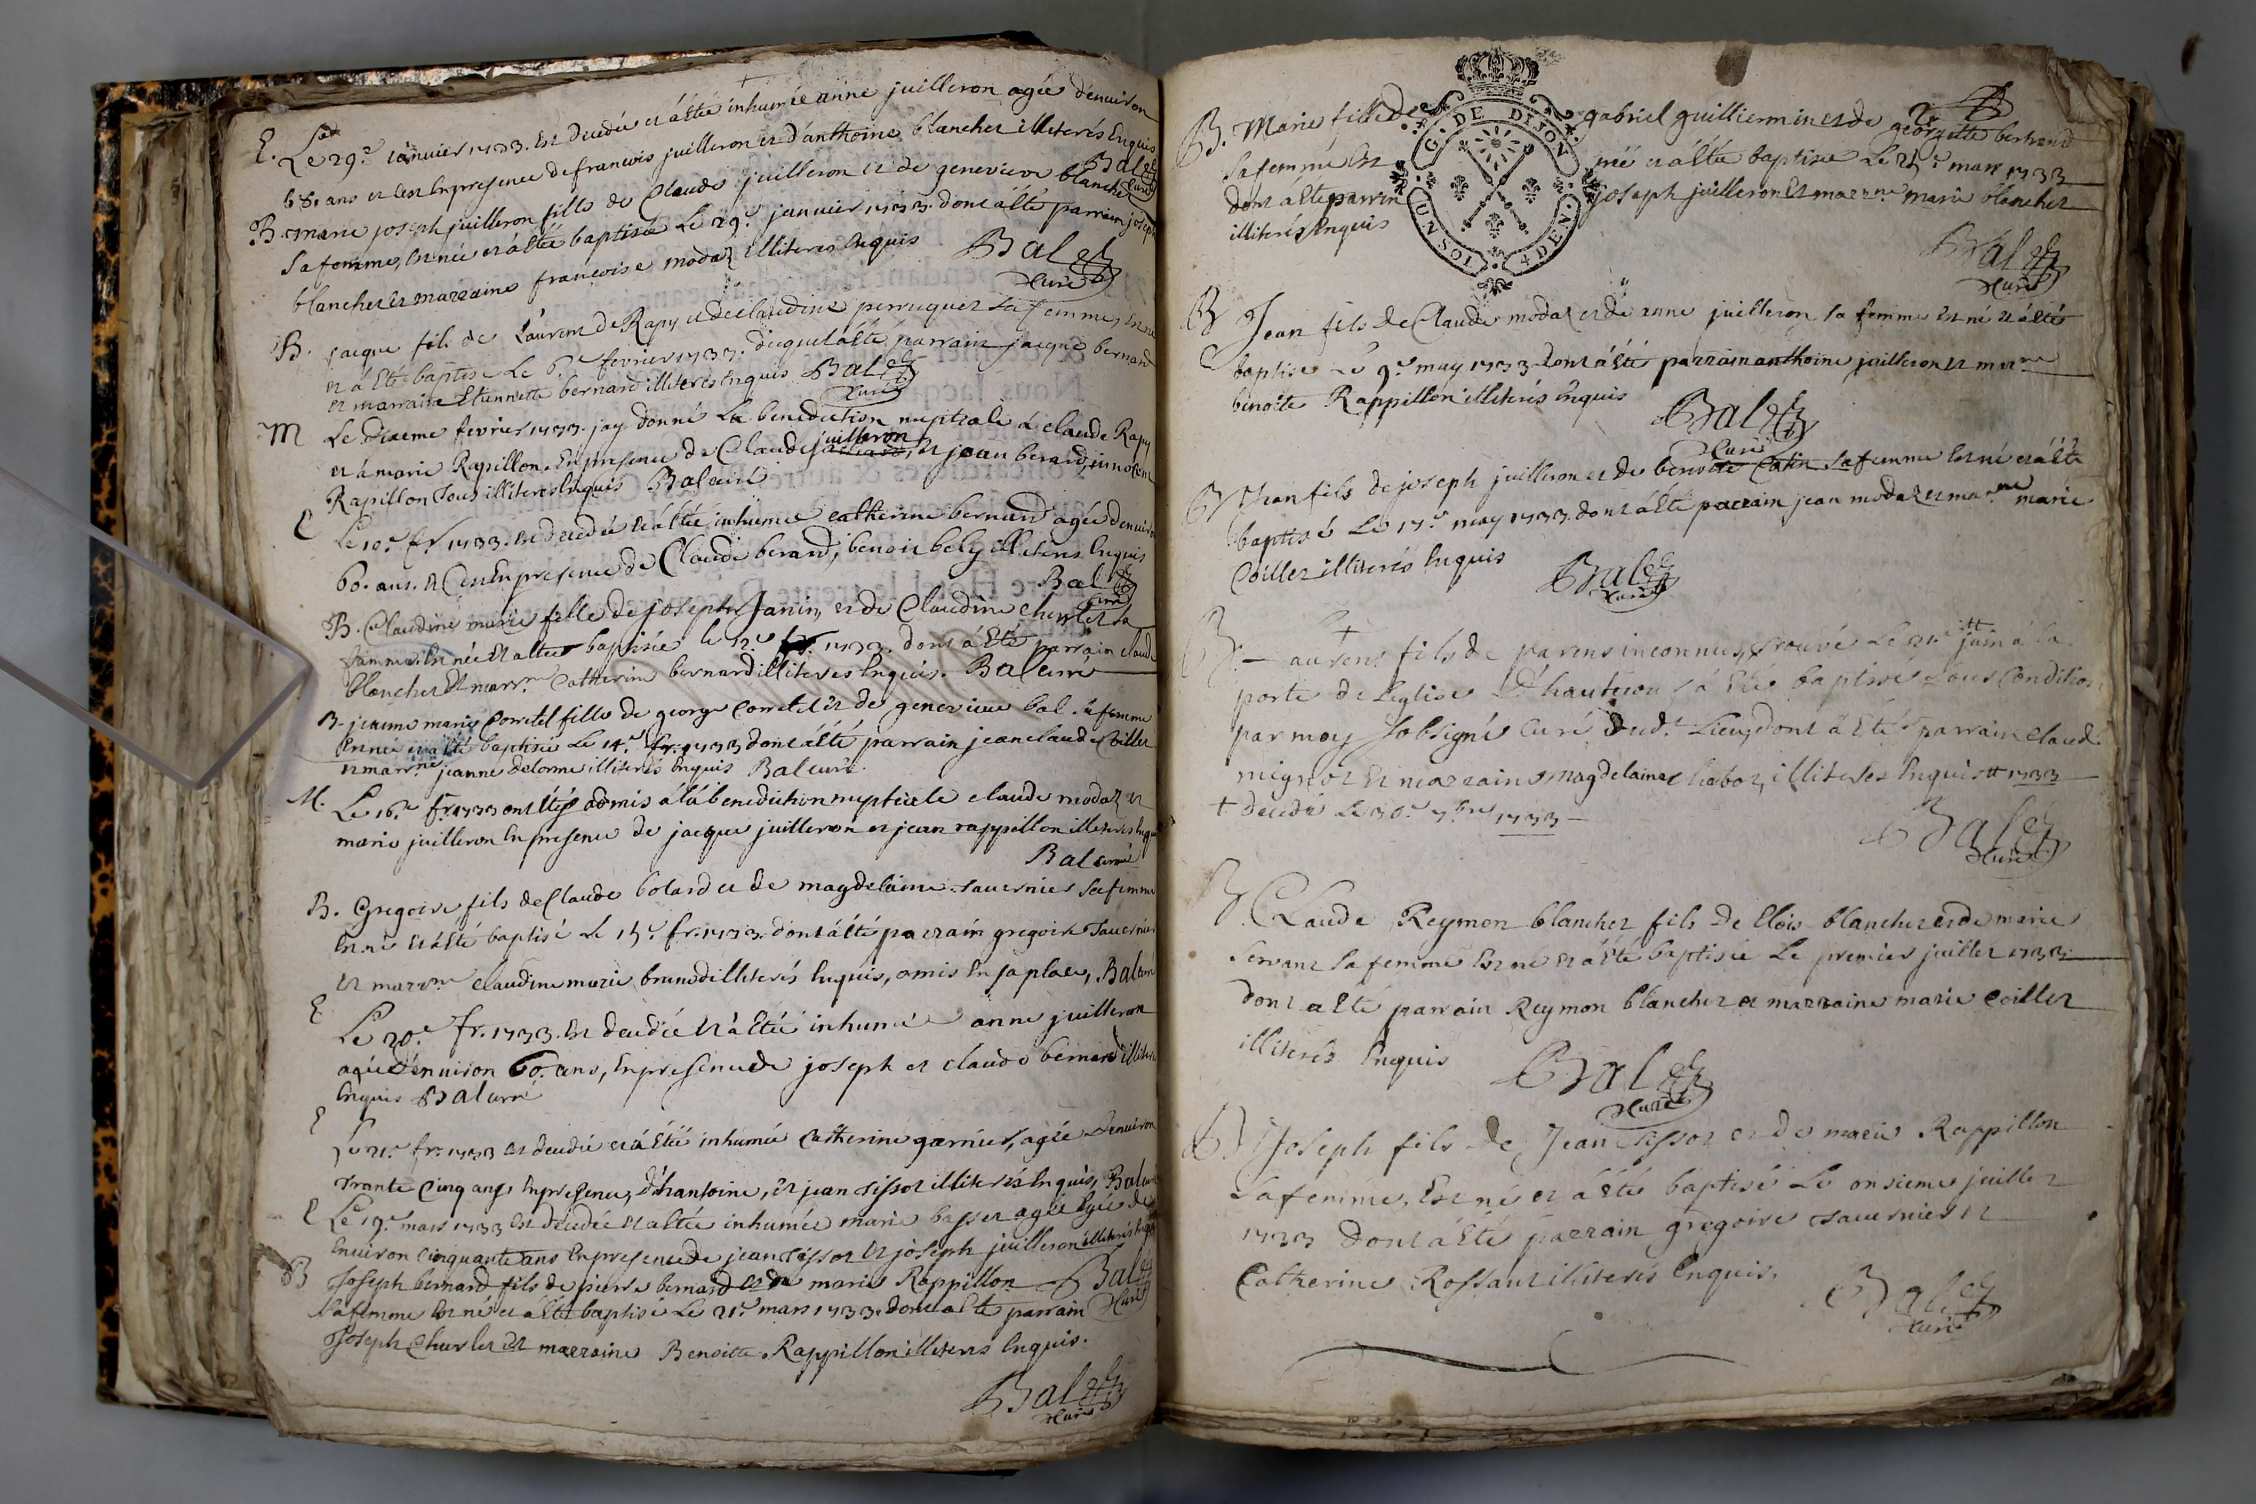 E. Le 29.e Ianvier 1733. Est decedée et a Esté inhumée anne juilleron agée denviron
68. ans et c'est En presence de francois juilleron et d'anthoine blanchet illiterés Enquis
Bal Curé
B. marie joseph juilleron fille de Claude juilleron et de genevieve blanchet
sa femme, Est née et a Esté baptisée Le 29.e janvier 1733. dont a esté parrain joseph
blanchet Et marraine francoise modaz illiteres Enquis Bal Curé
B. jacque fils de Laurent De Rapy et de claudine perruquet sa femme, Est né
et a Esté baptisé Le 6.e fevrier 1733. duquel a Esté parrain jacque bernard
et marraine Etiennette bernard illiterés Enquis Bal Curé
M Le Dixieme fevrier 1733. jay donné La benediction nuptiale a claude Rapy
et a marie Rapillon. En presence de Claude juilleron, Et jean berard, innocent
Rapillon tous illiteres Enquis Bal curé
E Le 10.e fr. 1733. Est decedée et a Esté inhumée catherine bernard agée denviron
60. ans. et C'est En presence de Claude berard, benoit bely illiteres Enquis
Bal Curé
B. Claudine marie fille de joseph Janin, et de Claudine chevrlet sa
famme. Est née Et a Esté baptisée le 12.e fr. 1733. dont a Esté parrain claude
blanchet Et marr.ne Catherine bernard illiteres Enquis. Bal curé
B. jeanne marie Corretel fille de george Corretel et de genevieve bal sa femme
Est née et a Esté baptisée Le 14.e fr. 1733 dont a Esté parrain jean claude Coillet
et marr.ne jeanne delorme illiterés Enquis Bal curé.
M. Le 16.e fr. 1733 ont Estés admis a la benediction nuptiale claude modaz et
marie juilleron En presence de jacque juilleron et jean rappillon illiteres Enquis
Bal curé
B. Gregoire fils de Claude bolard et de magdelaine tavernier sa femme
Est né et a Esté baptisé Le 15.e fr. 1733. dont a Esté parrain gregoire Tavernier
et marr.ne claudine marie brunod illiterés Enquis, omis En sa place, Bal curé
E Le 20.e fr. 1733. Est decedée Et a Esté inhumée anne juilleron
agée d'environ 60. ans, En presence de joseph et claude bernard illiterés
Enquis Bal curé
E Le 21.e fr. 1733 Est decedée et a Esté inhumée Catherine garnier, agée denviron
trante Cinq ans, En presence, d'hantoine, et jean tissot illiterés Enquis, Bal curé
E Le 19.e mars 1733 Est decedée Et a Esté inhumée marie basset agée de
Environ cinquante ans En presence de jean tissot Et joseph juilleron illiterés Enquis
B Joseph bernard fils de pierre bernard et de marie Rappillon Bal Curé
sa femme Est né et a Esté baptisé Le 21.e mars 1733. dont a Esté parrain
Joseph Chevrlet et marraine Benoitte Rappillon illiteres Enquis.
Bal Curé
G. DE DIJON
UN SOL 4 DEN.
B. Marie fille de gabriel guilliermin et de georgette bertrand
sa femme Est née et a Esté baptisée Le 25.e mars 1733
dont a Esté parrin joseph juilleron Et marr.ne marie blanchet
illiterés Enquis
Bal Curé
B Jean fils de Claude modaz et de anne juilleron sa femme Est né et a Esté
baptisé Le 9.e may 1733 dont a Esté parrain anthoine juilleron et mar.ne
benoite Rappillon illiterés Enquis
Bal Curé
B Jean fils de joseph juilleron et de benoite Catin sa femme Est né et a Esté
baptisé Le 17.e may 1733. dont a Esté parrain jean modaz et mar.ne marie
Coillet illiterés Enquis Bal Curé
B. + aurent fils de parens inconnus, trouvé Le juin a la
porte de L'eglise d'hautecour, a Esté baptisé sous Condition
par moy sobsigné Curé dud.t Lieu, dont a Esté parrain claude
mignot Et marraine magdelaine chabot, illiteres Enquis 1733
+ decedé Le 30.e 7.bre 1733
Bal Curé
B Claude Reymon blanchet fils de Elois blanchet et de marie
servant sa femme Est né et a Esté baptisé Le premier juillet 1733.
dont a Esté parrain Reymon blanchet et marraine marie coillet
illiterés Enquis Bal Curé
B Joseph fils de Jean tissot et de marie Rappillon
sa femme, Est né et a Esté baptisé Le onsieme juillet
1733 dont a Esté parrain gregoire tavernier et
Catherine Rossaut illiterés Enquis.
Bal Curé